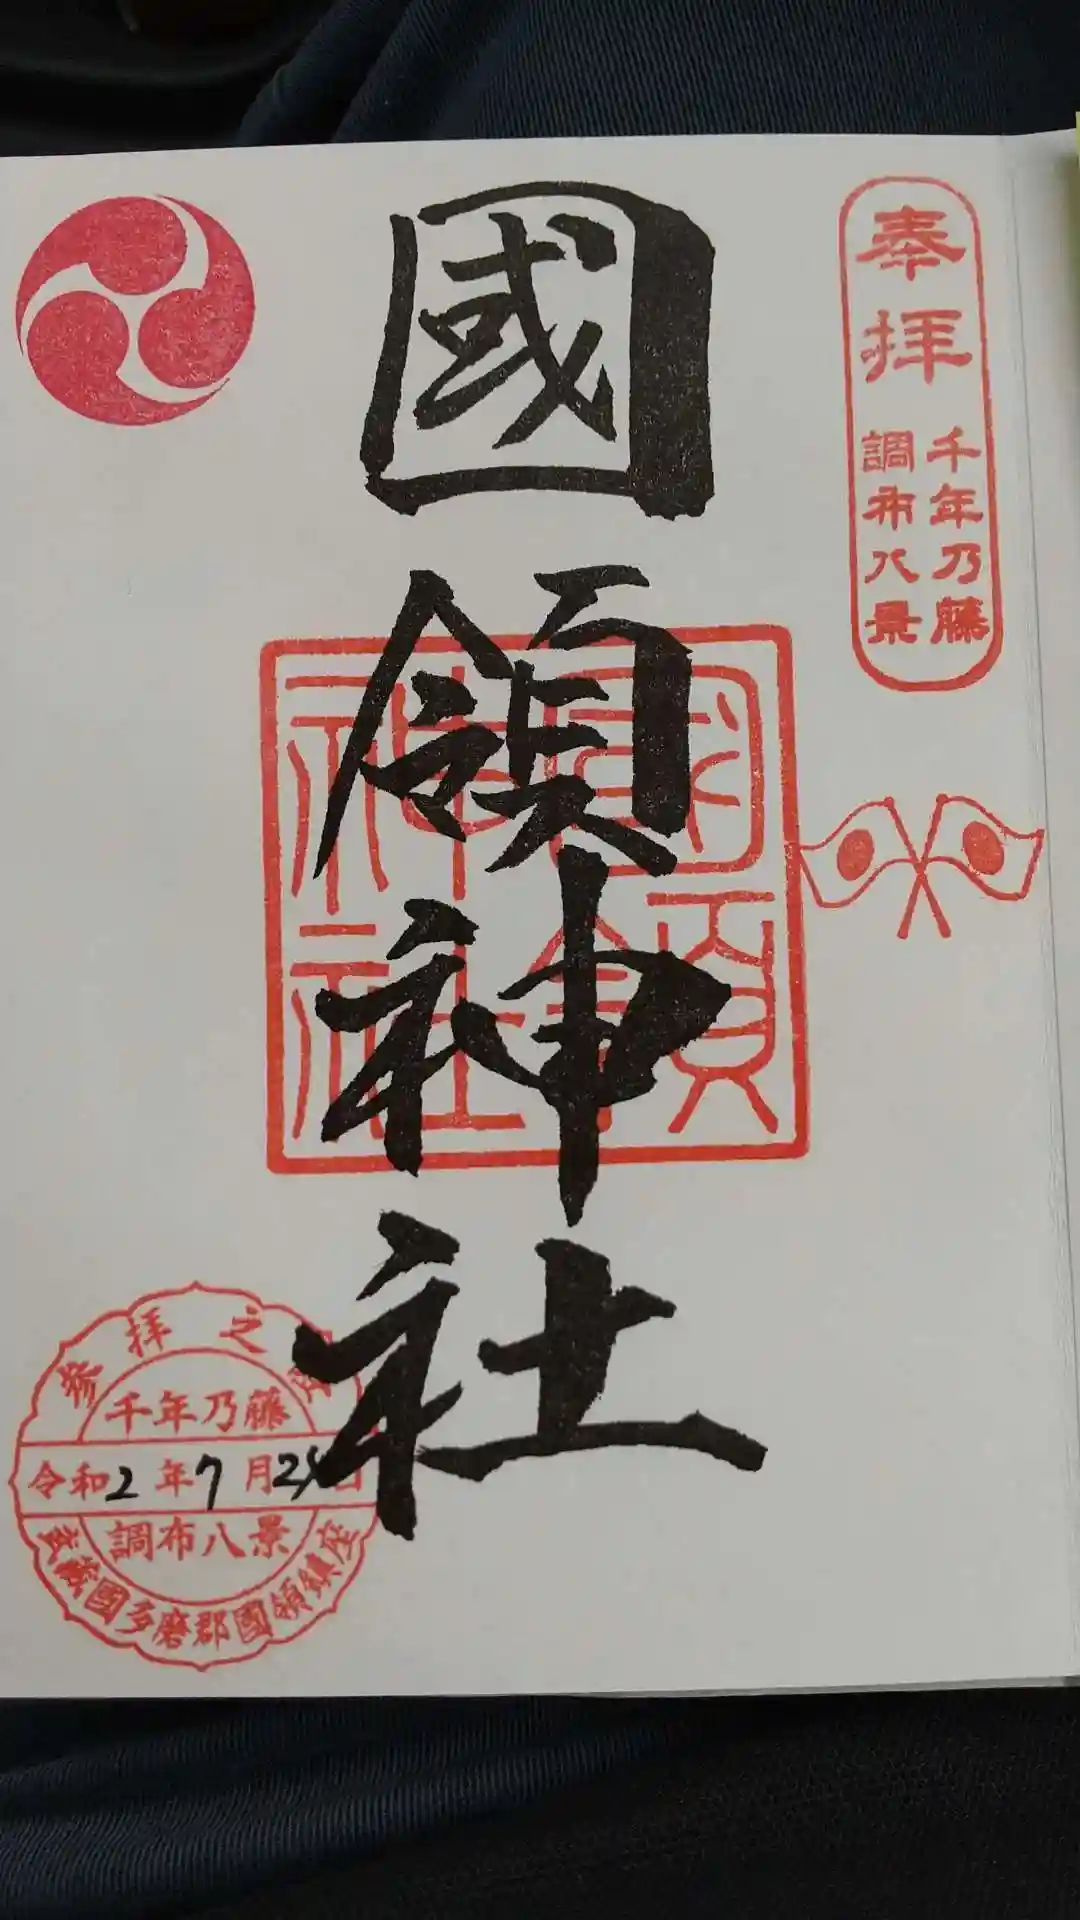 奉拝
千年乃藤
調布八景
國領神社
國領
神社
参拝之
千年乃藤
令和2年7月2 日
調布八景
武蔵國多磨郡國領鎮座